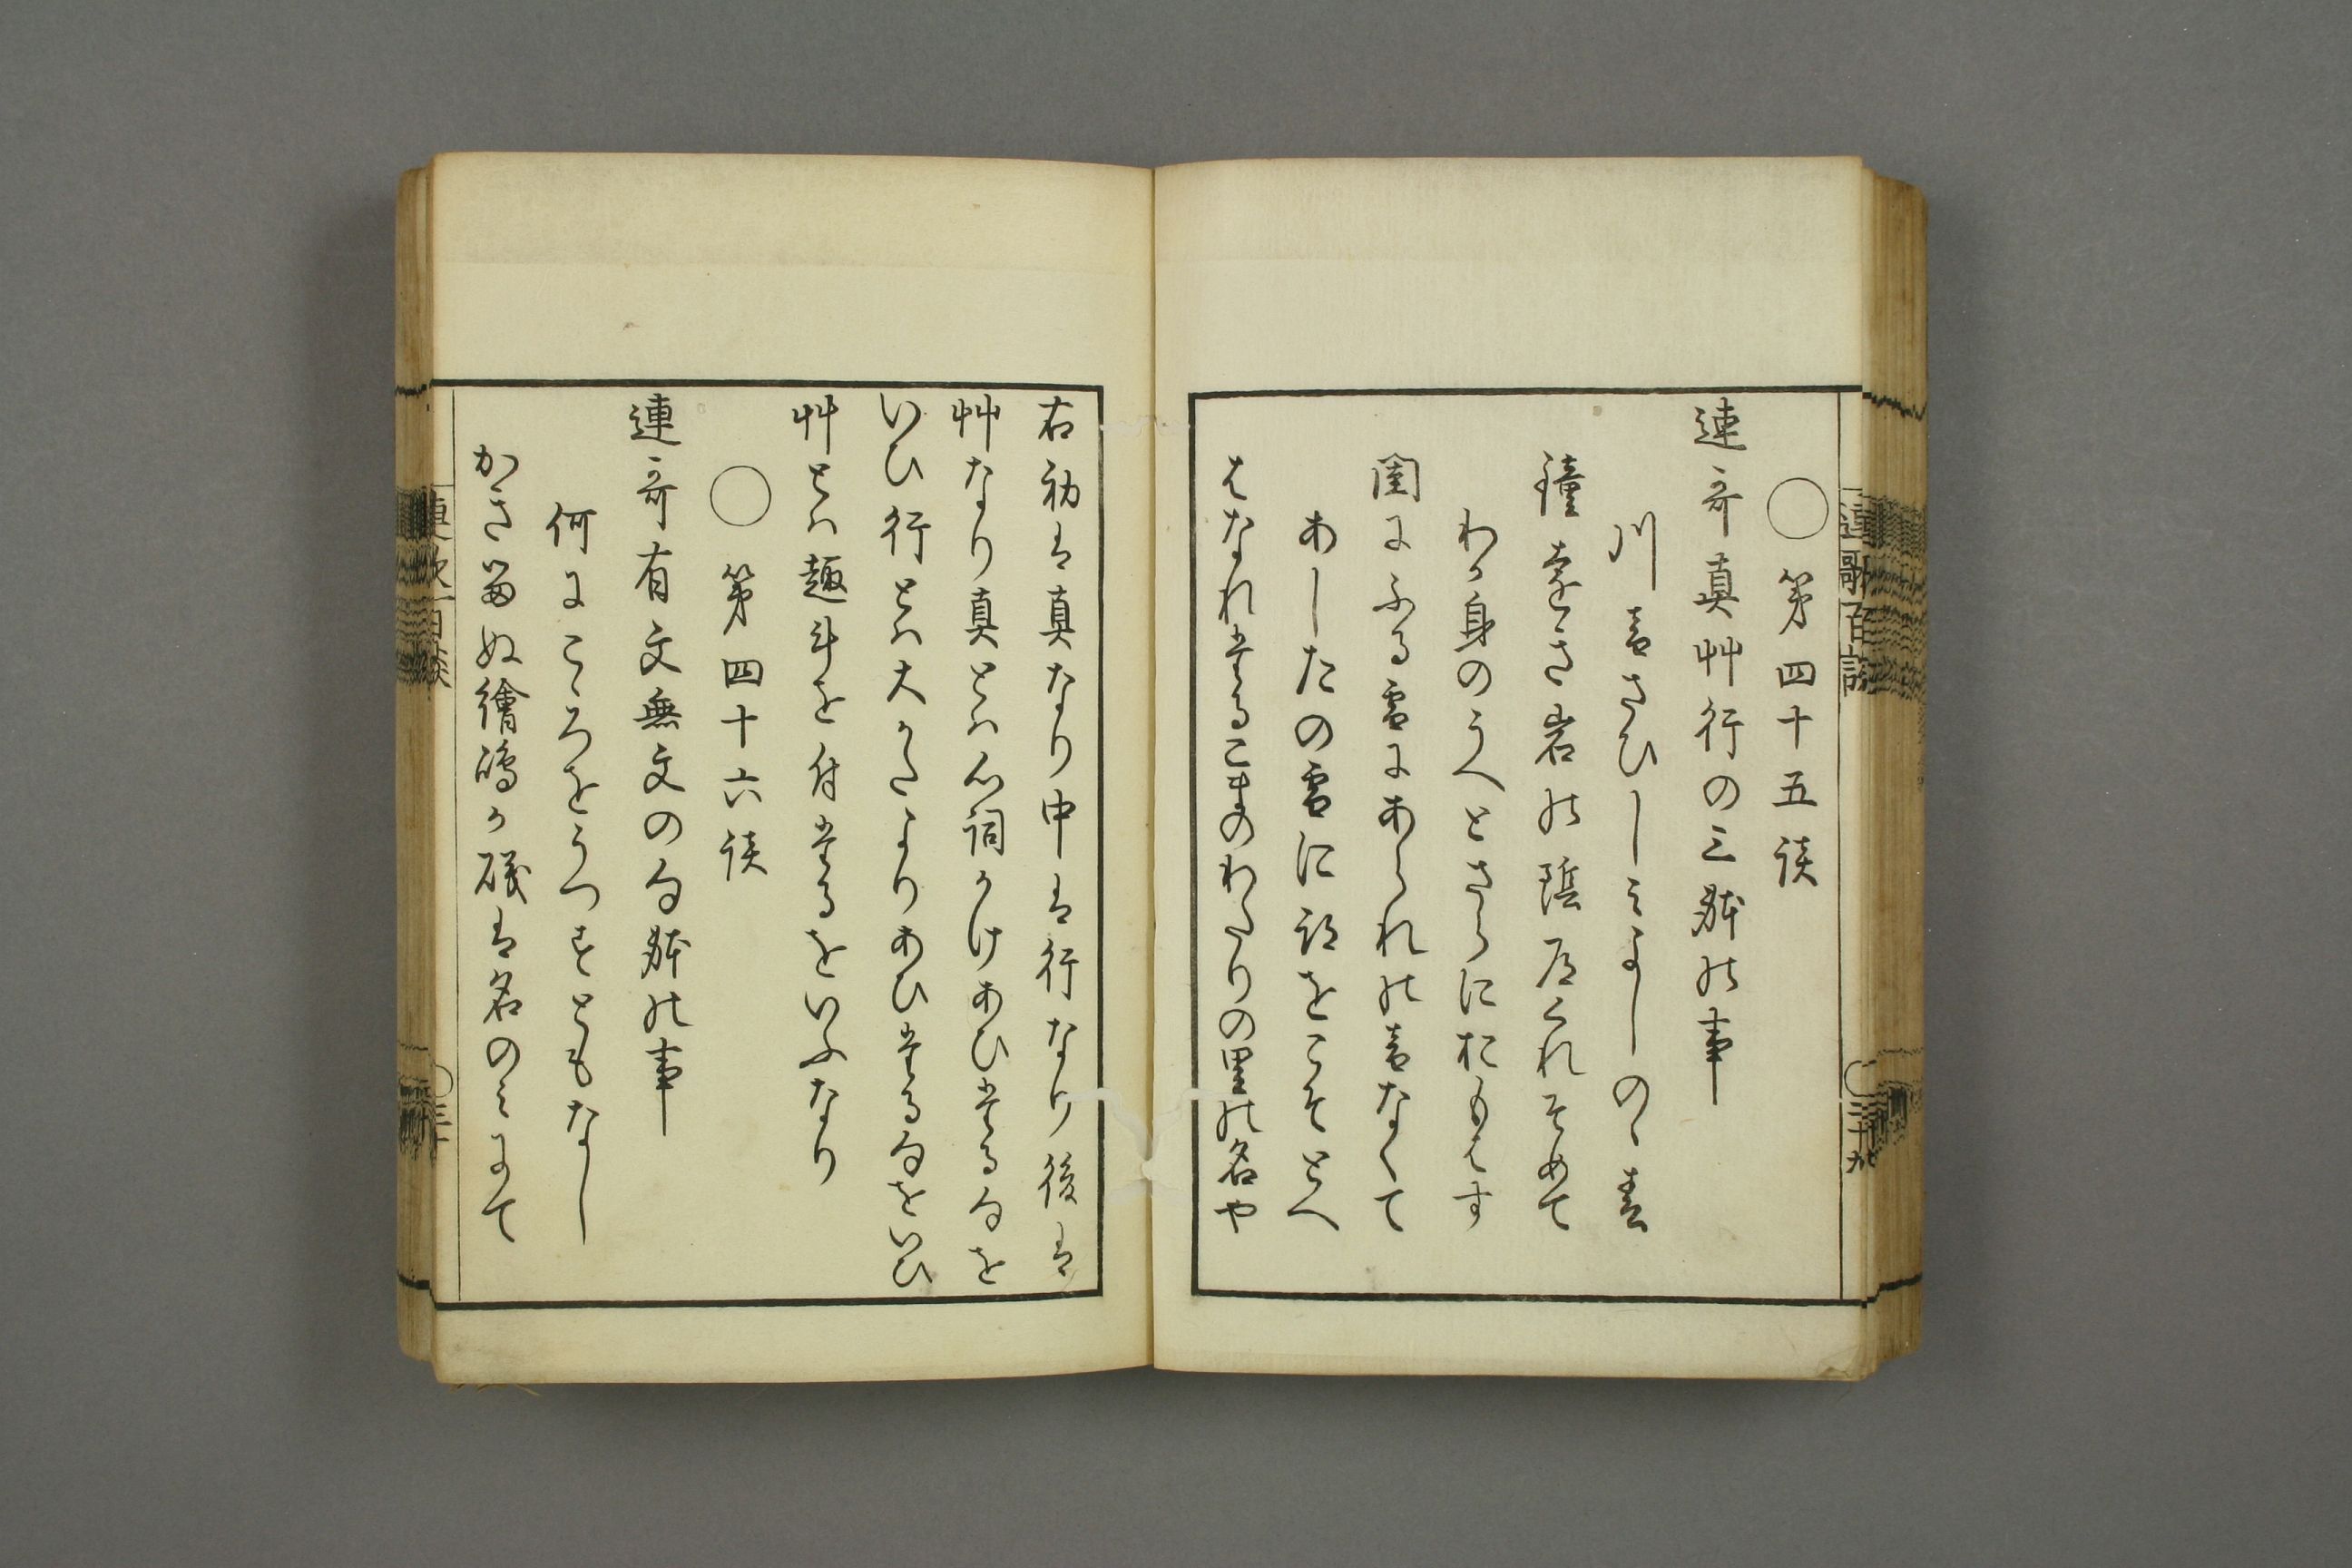 連歌百談
○三十九
○第四十五談
連哥真艸行の三躰の事
川音さひしみよしのゝ春
鐘遠き岩の陰道くれそめて
わか身のうへとさらにおもはす
閨にふる雪にあられの音なくて
あしたの雪に誰をこそとへ
はなれたるこまのわたりの里の名や
右初は真なり中は行なり後は
艸なり真とハ心詞かけあひたる句を
いひ行とハ大かたよりあひたる句をいひ
艸とハ趣斗を付たるをいふなり
○第四十六談
連哥有文無文の句躰の事
何にこゝろをうつすともなし
かき留ぬ繪嶋か礒は名のみにて
○三十